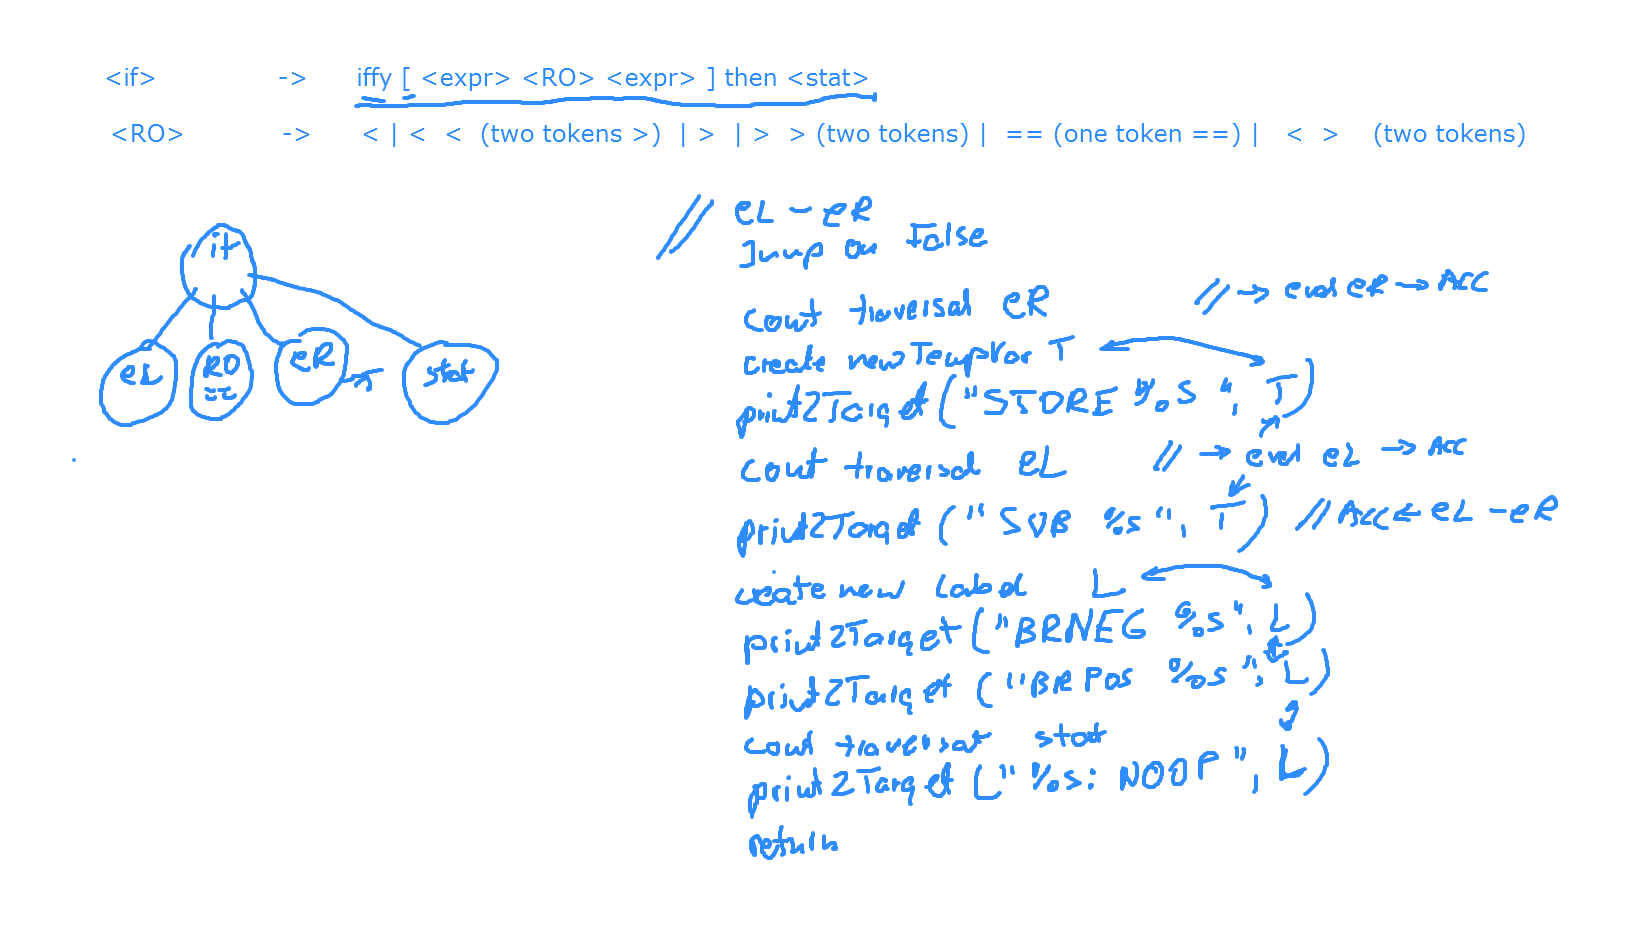 <if> -> iffy [ <expr> <RO> <expr> ] then <stat>
<RO> -> < | < < (two tokens >) | > | > > (two tokens) | == (one token ==) | < > (two tokens)
if
eL RO == eR stat
// eL - eR
Jump on False
// → eval eR → Acc
cont traversal eR
create newTempVar T
print2Target ("STORE %s", T)
cont traversal eL // → eval eL → Acc
print2Target ("SUB %s", T) // Acc ← eL - eR
create new Label L
print2Target ("BRNEG %s", L)
print2Target ("BRPOS %s", L)
cont traversal stat
print2Target ("%s: NOOP", L)
return